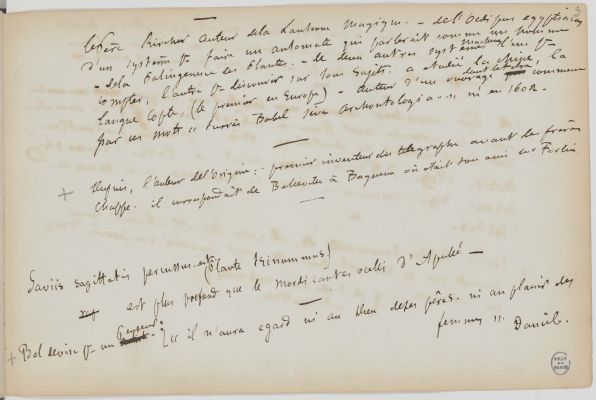 3
le Père Kircher auteur de la Lanterne magique. - de l'Oedipus egyptiacus
d'un système pr faire un automate qui parlerait comme un homme
- de la Palingenesie des Plantes. - de deux autres systèmes machines l'un pr
compter, l'autre pr discourir sur tous sujets. a étudié la
langue Copte, (le premier en Europe) - auteur d'un ouvrage dont la
par ces mots « turris Babel sive Archontologia », né en 1602.
+ Dupuis, l'auteur de l'Origine : premier inventeur du telegraphe avant les frères
Chappe. il correspondait de Belleville à Bagneux où était son ami
Saviis sagittatis percussus est (Plaute Trinummus)
est plus profond que le mordicantes oculi d'Apulée —
+ Bel devise pr un « il n'aura egard ni au Dieu de ses pères. ni au plaisir des
femmes ». Daniel.
VILLE DE PARIS